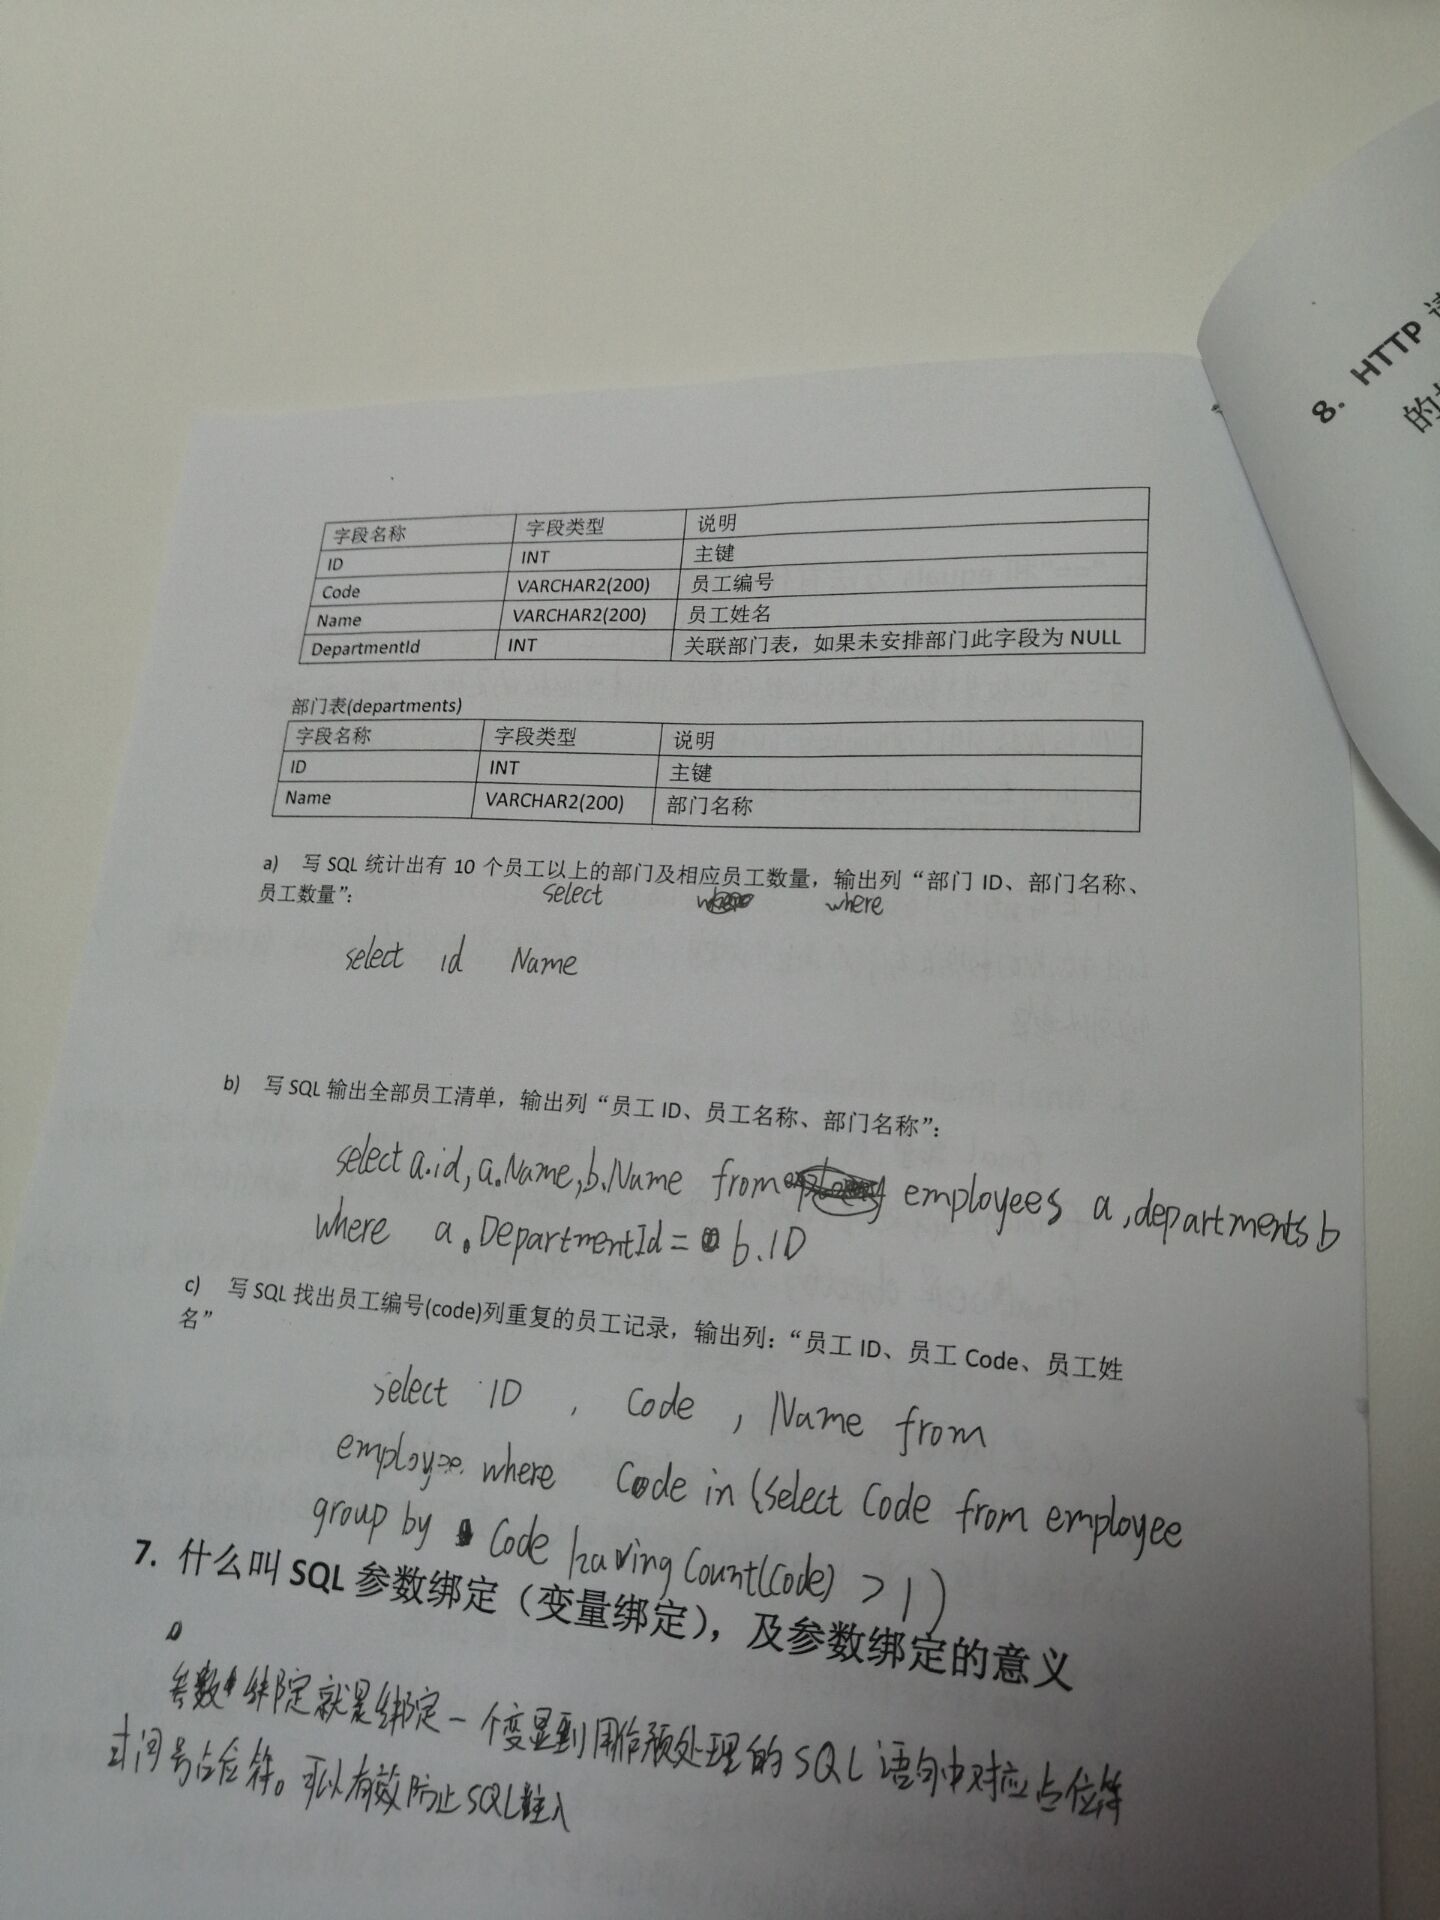 8. HTTP
的
字段名称 字段类型 说明
ID INT 主键
Code VARCHAR2(200) 员工编号
Name VARCHAR2(200) 员工姓名
DepartmentId INT 关联部门表，如果未安排部门此字段为 NULL
部门表(departments)
字段名称 字段类型 说明
ID INT 主键
Name VARCHAR2(200) 部门名称
a) 写 SQL 统计出有 10 个员工以上的部门及相应员工数量，输出列“部门 ID、部门名称、
员工数量”：
select where
select id Name
b) 写 SQL 输出全部员工清单，输出列“员工 ID、员工名称、部门名称”：
select a.id, a.Name, b.Name from employees a, departments b
where a.DepartmentId = b.ID
c) 写 SQL 找出员工编号(code)列重复的员工记录，输出列：“员工 ID、员工 Code、员工姓
名”
select ID , Code , Name from
employee where Code in (select Code from employee
group by Code having Count(Code) > 1)
7. 什么叫 SQL 参数绑定（变量绑定），及参数绑定的意义
参数绑定就是绑定一个变量到用作预处理的SQL语句中对应占位符
或问号占位符。可以有效防止SQL注入